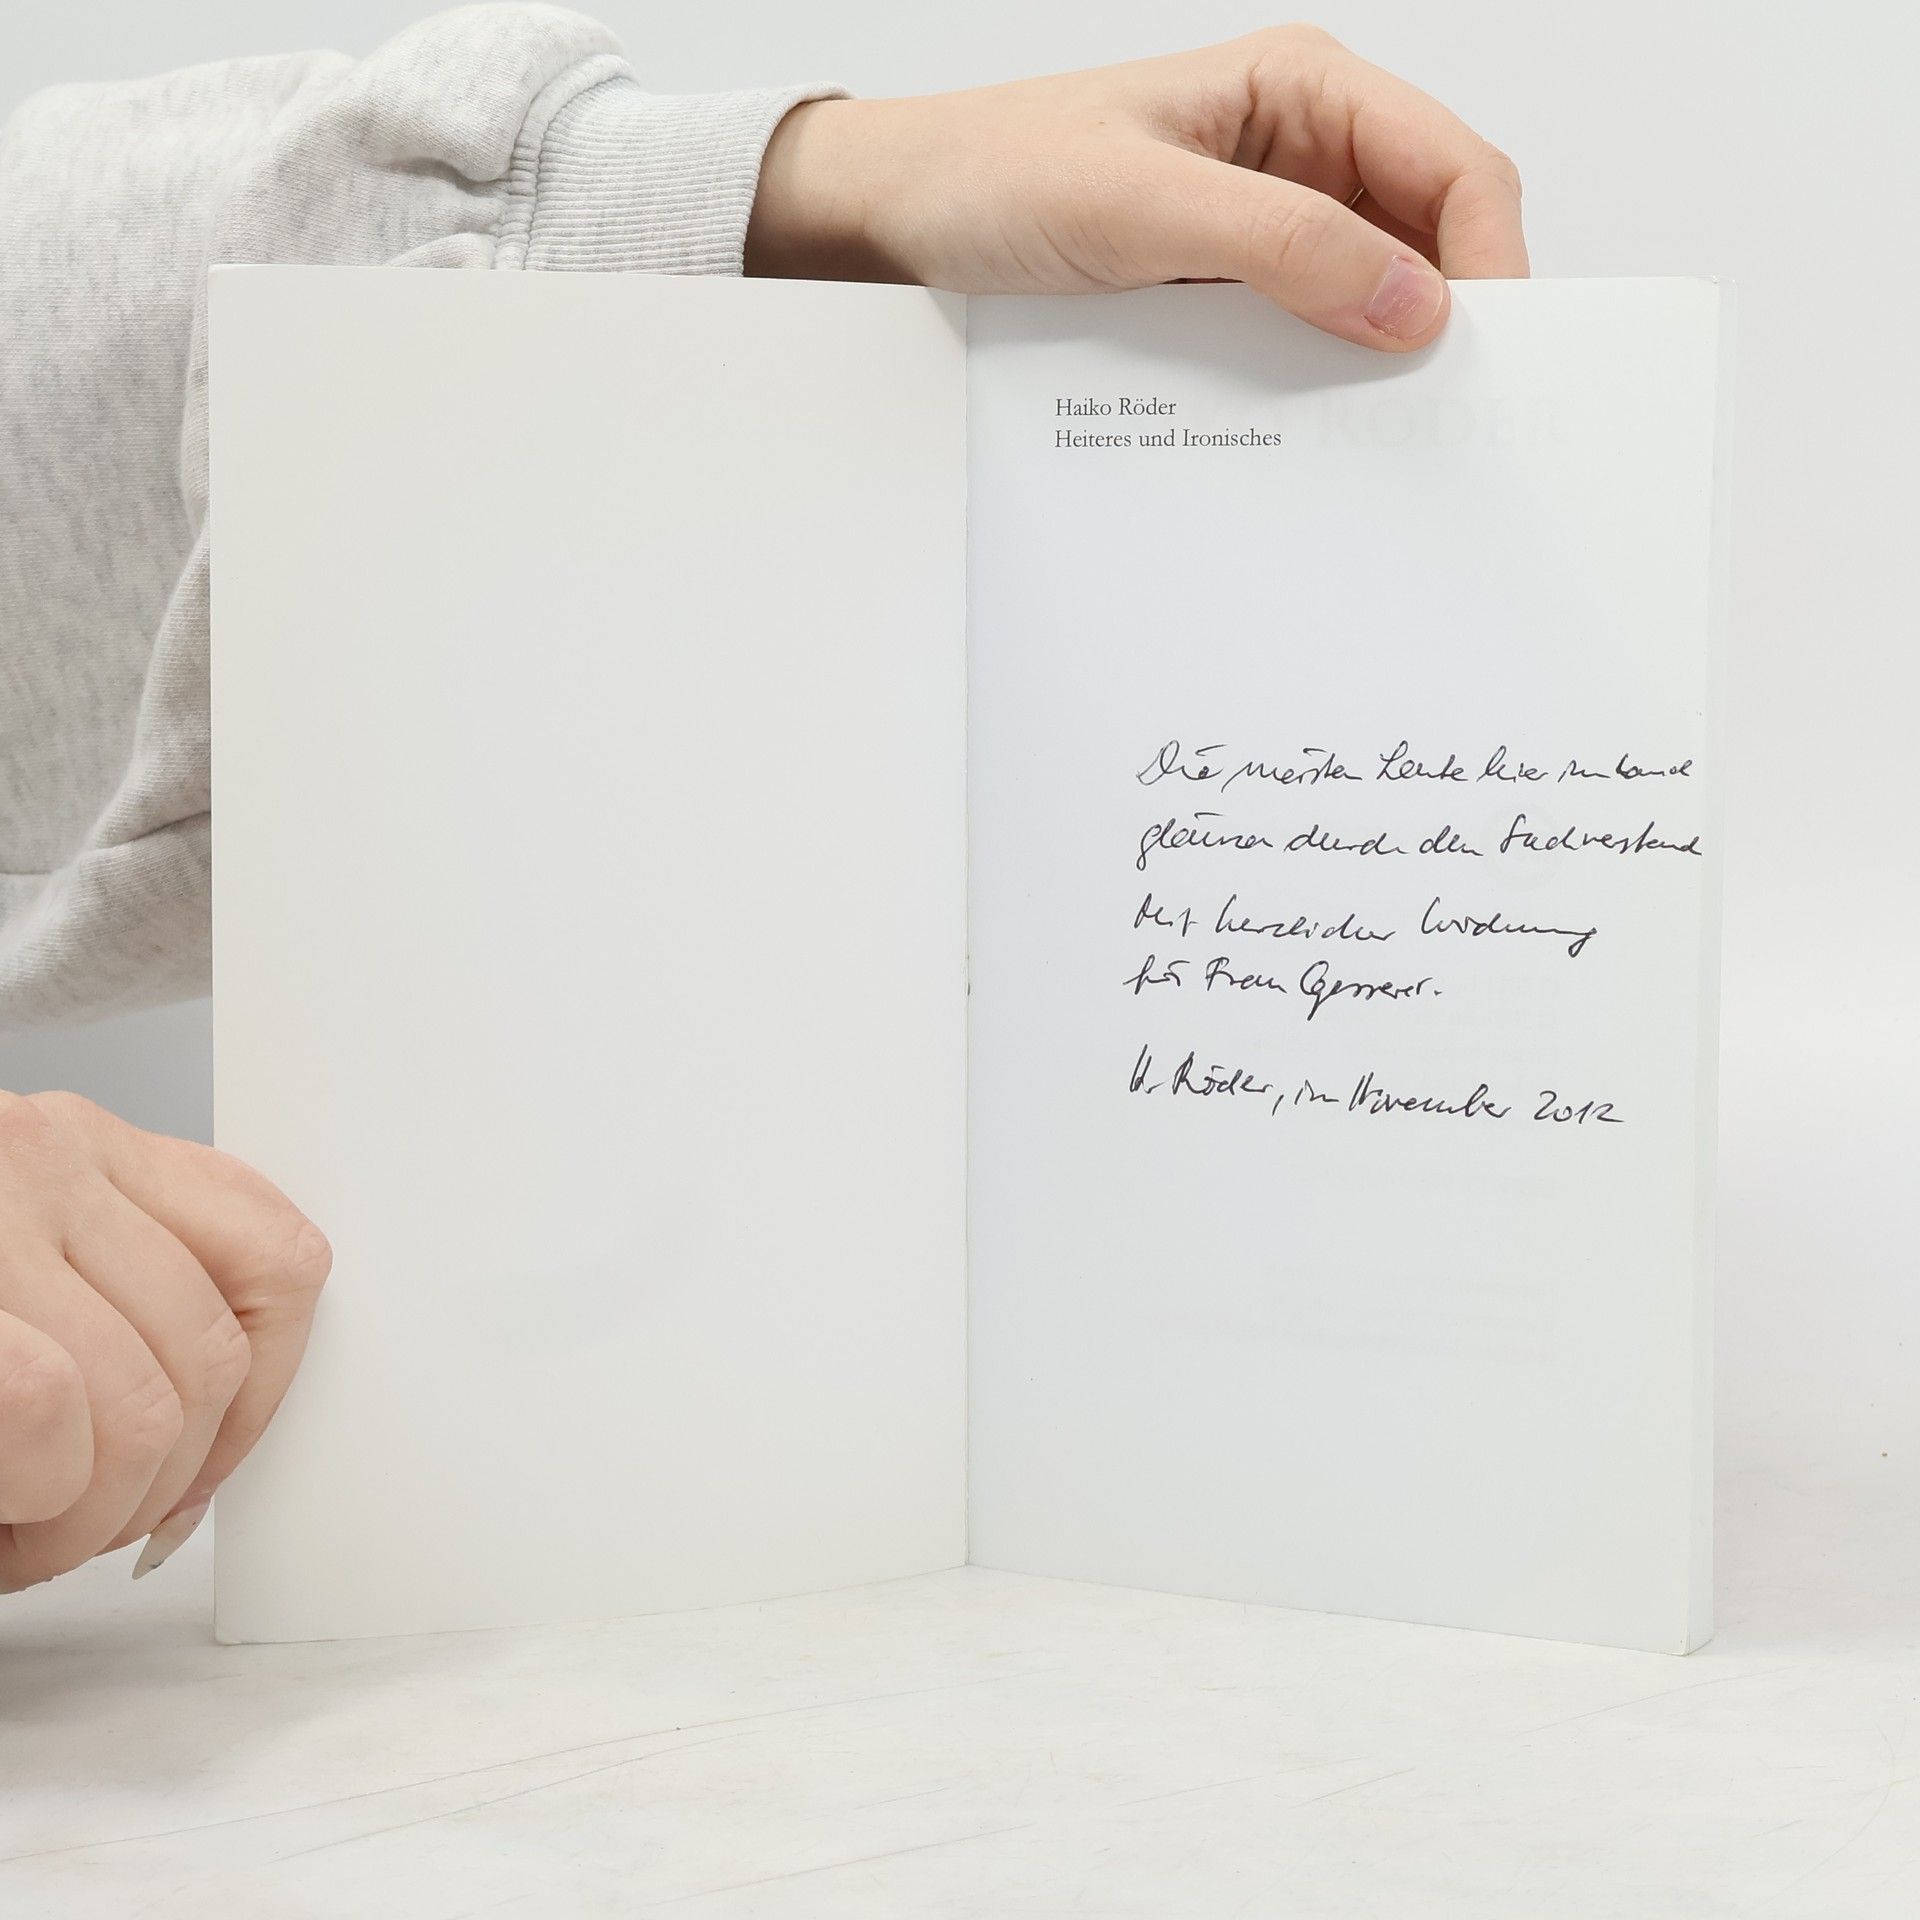 Haiko Röder
Heiteres und Ironisches
Die meisten Leute hier im Land
glänzen durch den Sachverstand
Mit herzlicher Widmung
für Frau
H. Röder, im November 2012